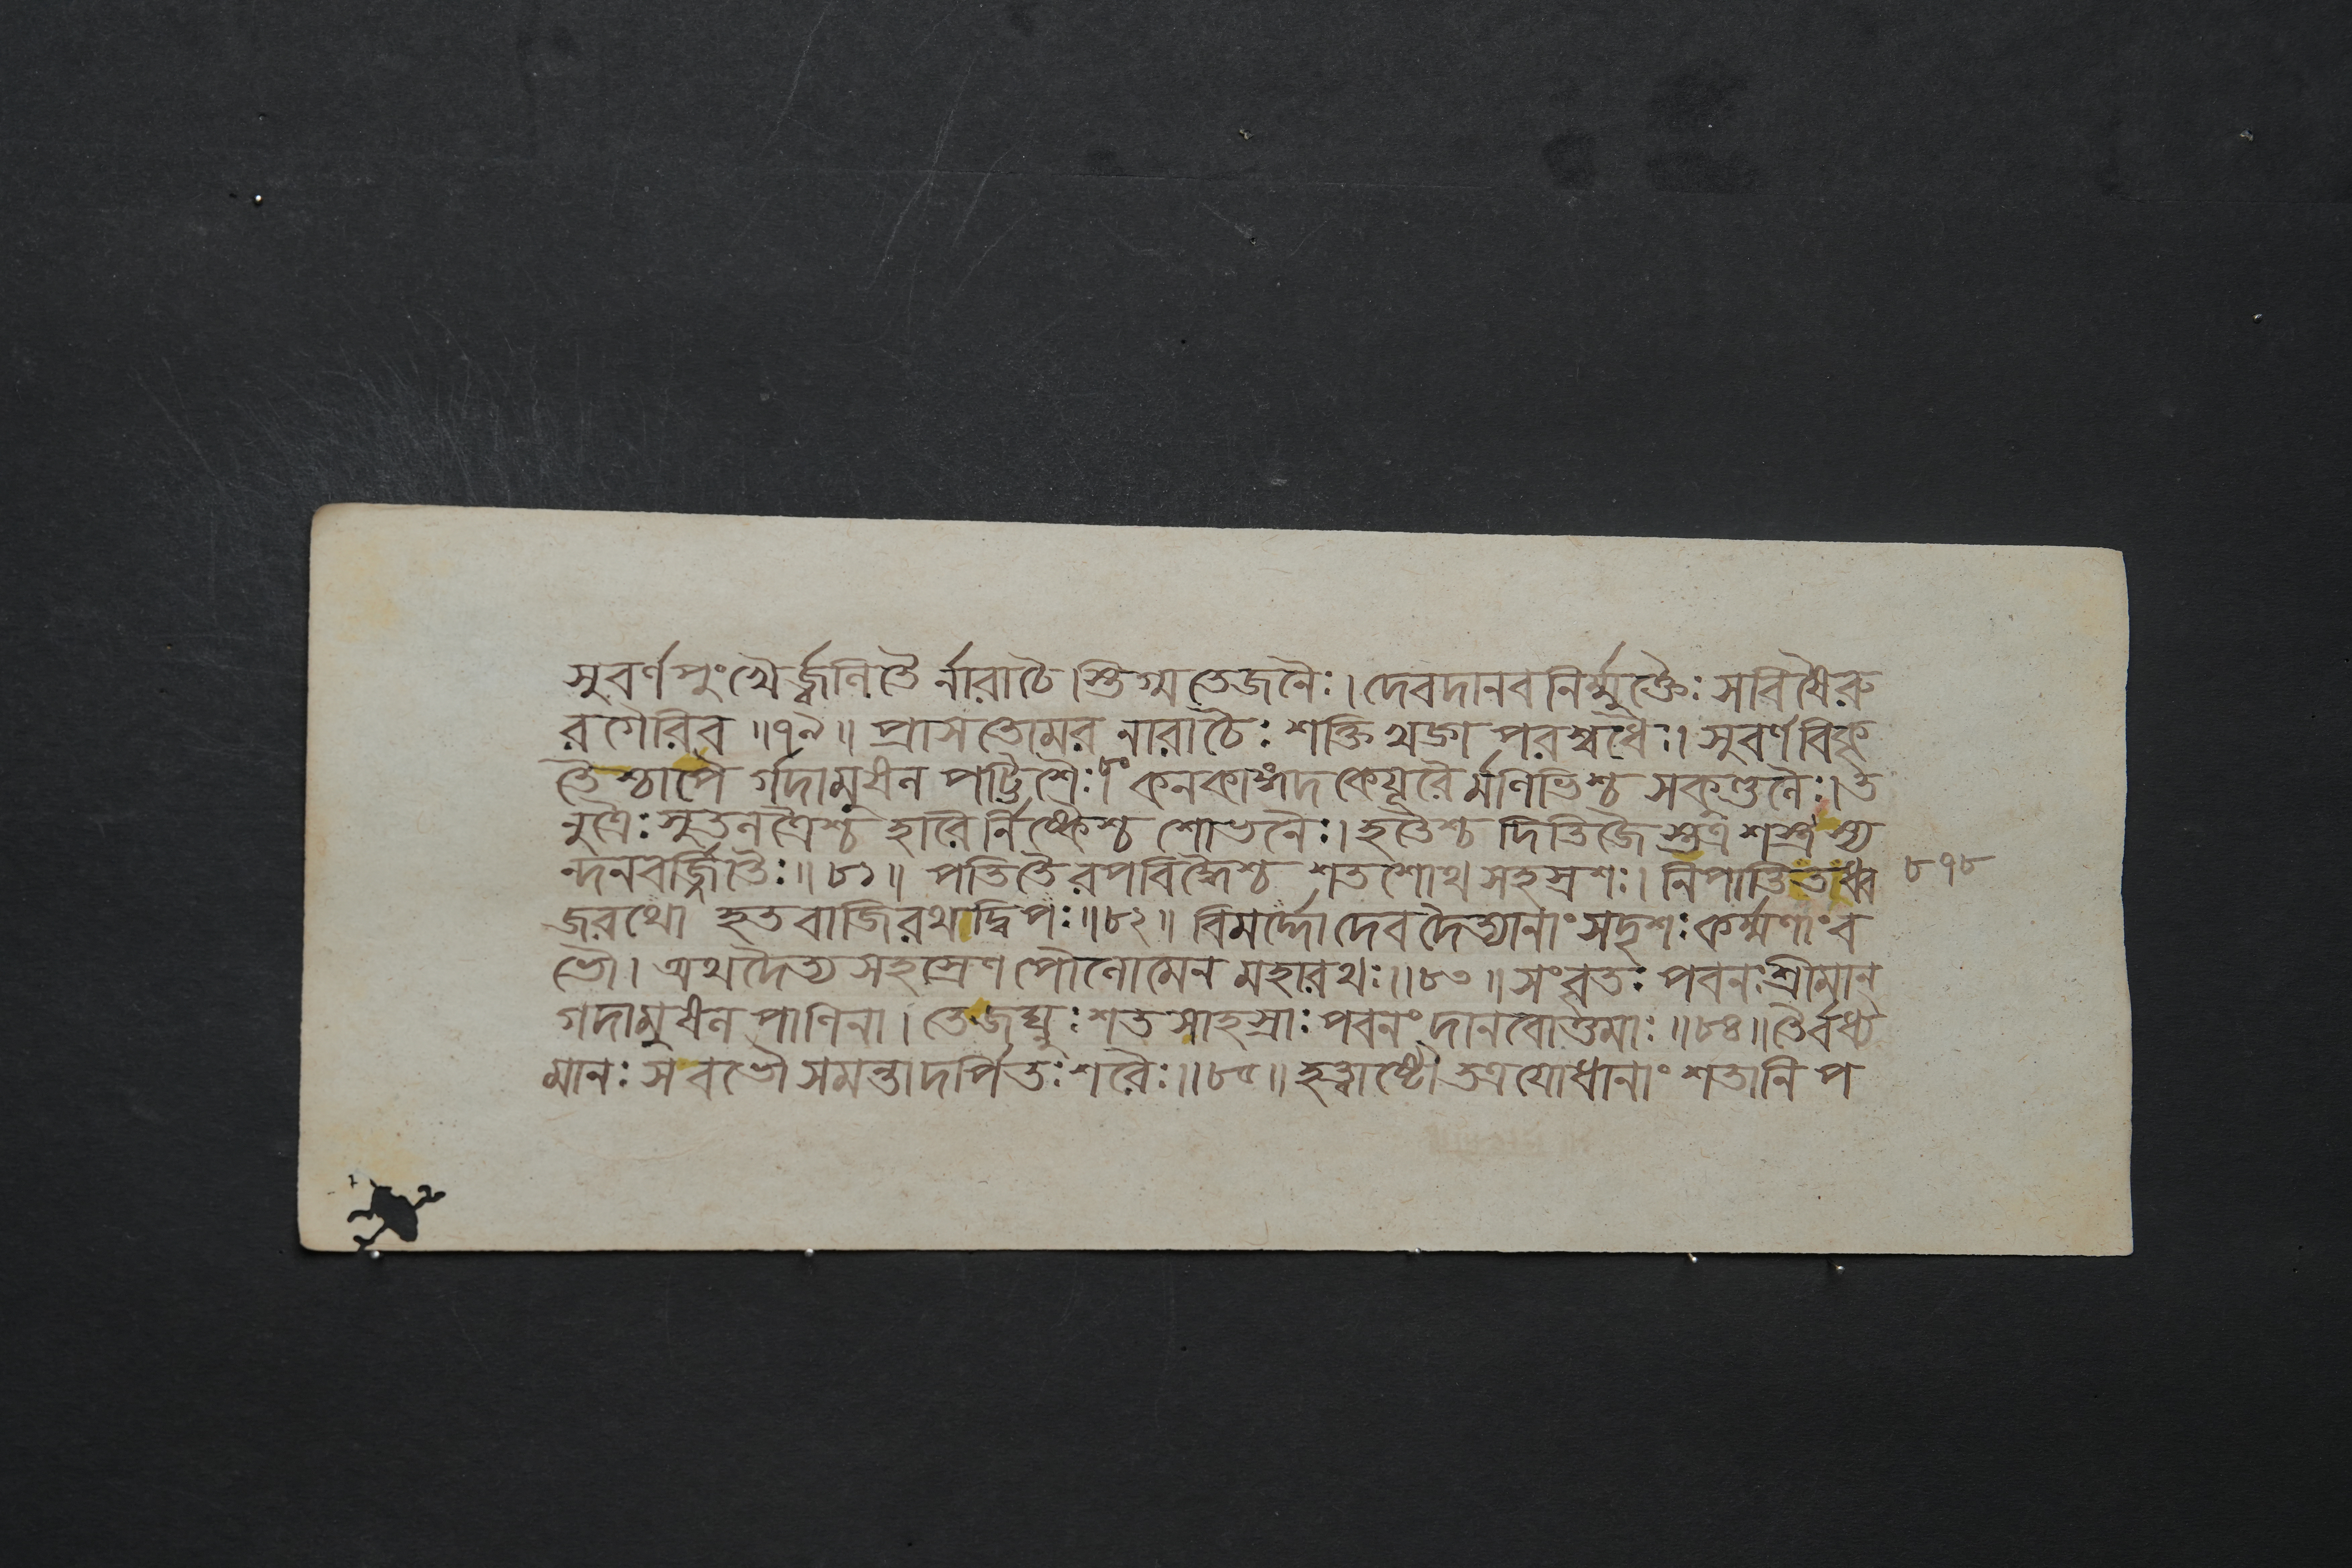 সুবর্ণপুংখৈর্জ্জ্বলিতৈ র্নারাচৈ স্তিগ্মতেজনৈঃ। দেবদানবনির্ম্মুক্তৈঃ সবিষৈরু
রগৈরিব ॥৭৯॥ প্রাসতোমর নারাচৈঃ শক্তিখড়্গ পরশ্বধৈঃ। সুবর্ণবিকৃ
তৈশ্চাপৈ র্গদামুষল পট্টিশৈঃ।৮০ কনকাঙ্গদ কেয়ূরৈর্মণিভিশ্চ সকুণ্ডলৈঃ। ত
নুত্রৈঃ সুতলত্রৈশ্চ হারৈর্নিষ্কৈশ্চ শোভনৈঃ। হতৈশ্চ দিতিজৈ স্তত্র শস্ত্র স্য
ন্দনবর্জ্জিতৈঃ॥৮১॥ পতিতৈরপবিদ্ধৈশ্চ শতশোথ সহস্রশঃ। নিপাতিতধ্ব ৮৭৮
জরথো হতবাজিরথদ্বিপঃ॥৮২॥ বিমর্দ্দো দেবদৈত্যানাং সদৃশঃ কর্ম্মণাং ব
ভৌ। অথ দৈত্য সহস্রেণ পৌলোমেন মহারথঃ॥৮৩॥ সংবৃতঃ পবনঃ শ্রীমান্
গদামুষলপাণিনা। তেজঘ্নুঃ শতসাহস্রাঃ পবনং দানবোত্তমাঃ॥৮৪॥ তৈর্বধ্য
মানঃ সবভৌ সমন্তাদর্পিতঃ শরৈঃ॥৮৫॥ হত্বাষ্টৌ তত্র যোধানাং শতানি প